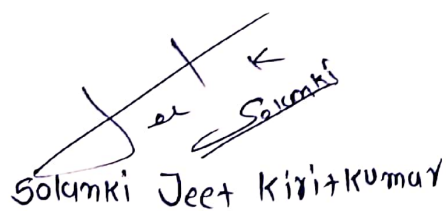 Jeet K Solanki
Solanki Jeet Kiritkumar